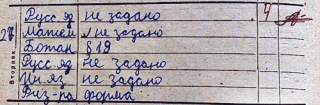 Русс яз не задано 4
27 Матем не задано
Вторник
Ботан § 19
Русс. яз не задано
Ин. яз не задано
Физ-ра форма.